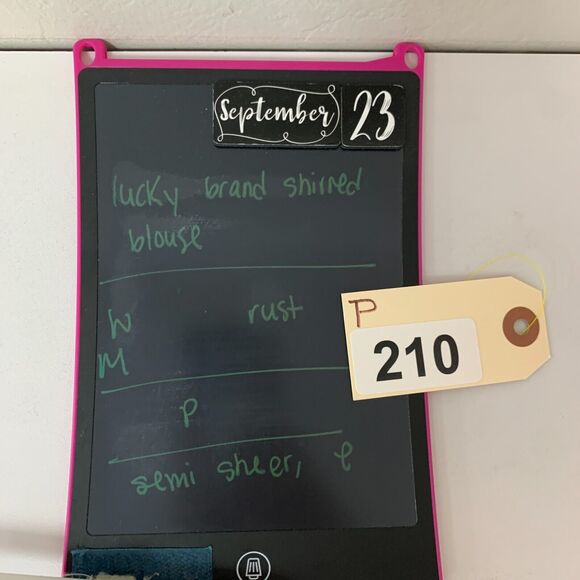 September 23
lucky brand shirred
blouse
W rust
M
P
semi sheer, e
P
210